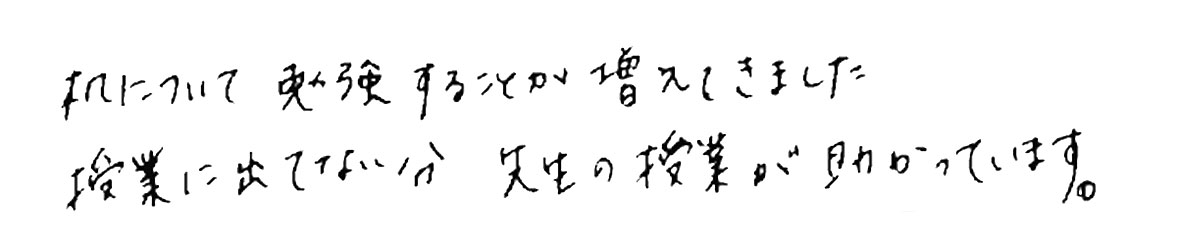 机について勉強することが増えてきました
授業に出てない分 先生の授業が助かっています。